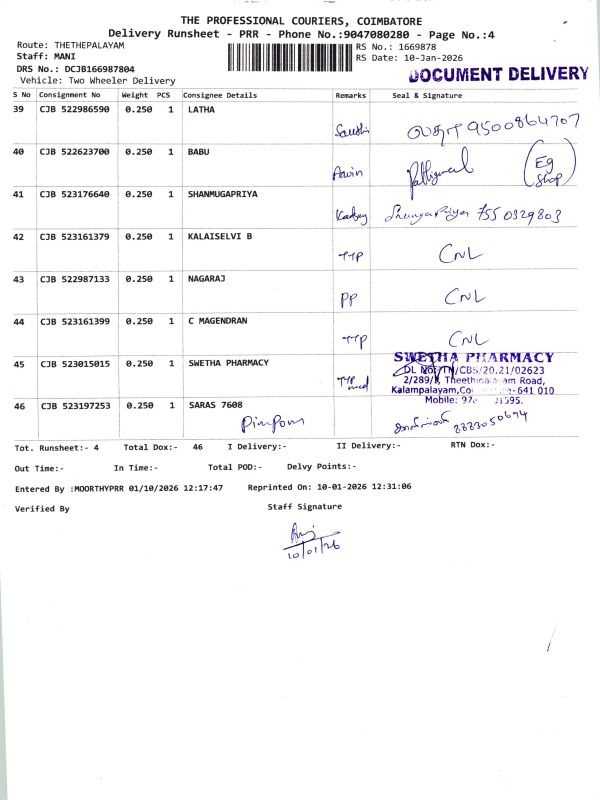 THE PROFESSIONAL COURIERS, COIMBATORE
Delivery Runsheet - PRR - Phone No.:9047080280 - Page No.:4
Route: THETHEPALAYAM
Staff: MANI
DRS No.: DCJB166987804
Vehicle: Two Wheeler Delivery
RS No.: 1669878
RS Date: 10-Jan-2026
DOCUMENT DELIVERY
S No Consignment No Weight PCS Consignee Details Remarks Seal & Signature
39 CJB 522986590 0.250 1 LATHA 9500864707
40 CJB 522623700 0.250 1 BABU (Eg Shop)
41 CJB 523176640 0.250 1 SHANMUGAPRIYA 755 0329803
42 CJB 523161379 0.250 1 KALAISELVI B TTP CNL
43 CJB 522987133 0.250 1 NAGARAJ PP CNL
44 CJB 523161399 0.250 1 C MAGENDRAN TTP CNL
45 CJB 523015015 0.250 1 SWETHA PHARMACY TTP med
SWETHA PHARMACY
/CBS/20,21/02623
Road,
Kalampalayam, 641 010
Mobile:
46 CJB 523197253 0.250 1 SARAS 7608
Tot. Runsheet:- 4 Total Dox:- 46 I Delivery:- II Delivery:- RTN Dox:-
Out Time:- In Time:- Total POD:- Delvy Points:-
Entered By :MOORTHYPRR 01/10/2026 12:17:47 Reprinted On: 10-01-2026 12:31:06
Verified By Staff Signature
10/01/26